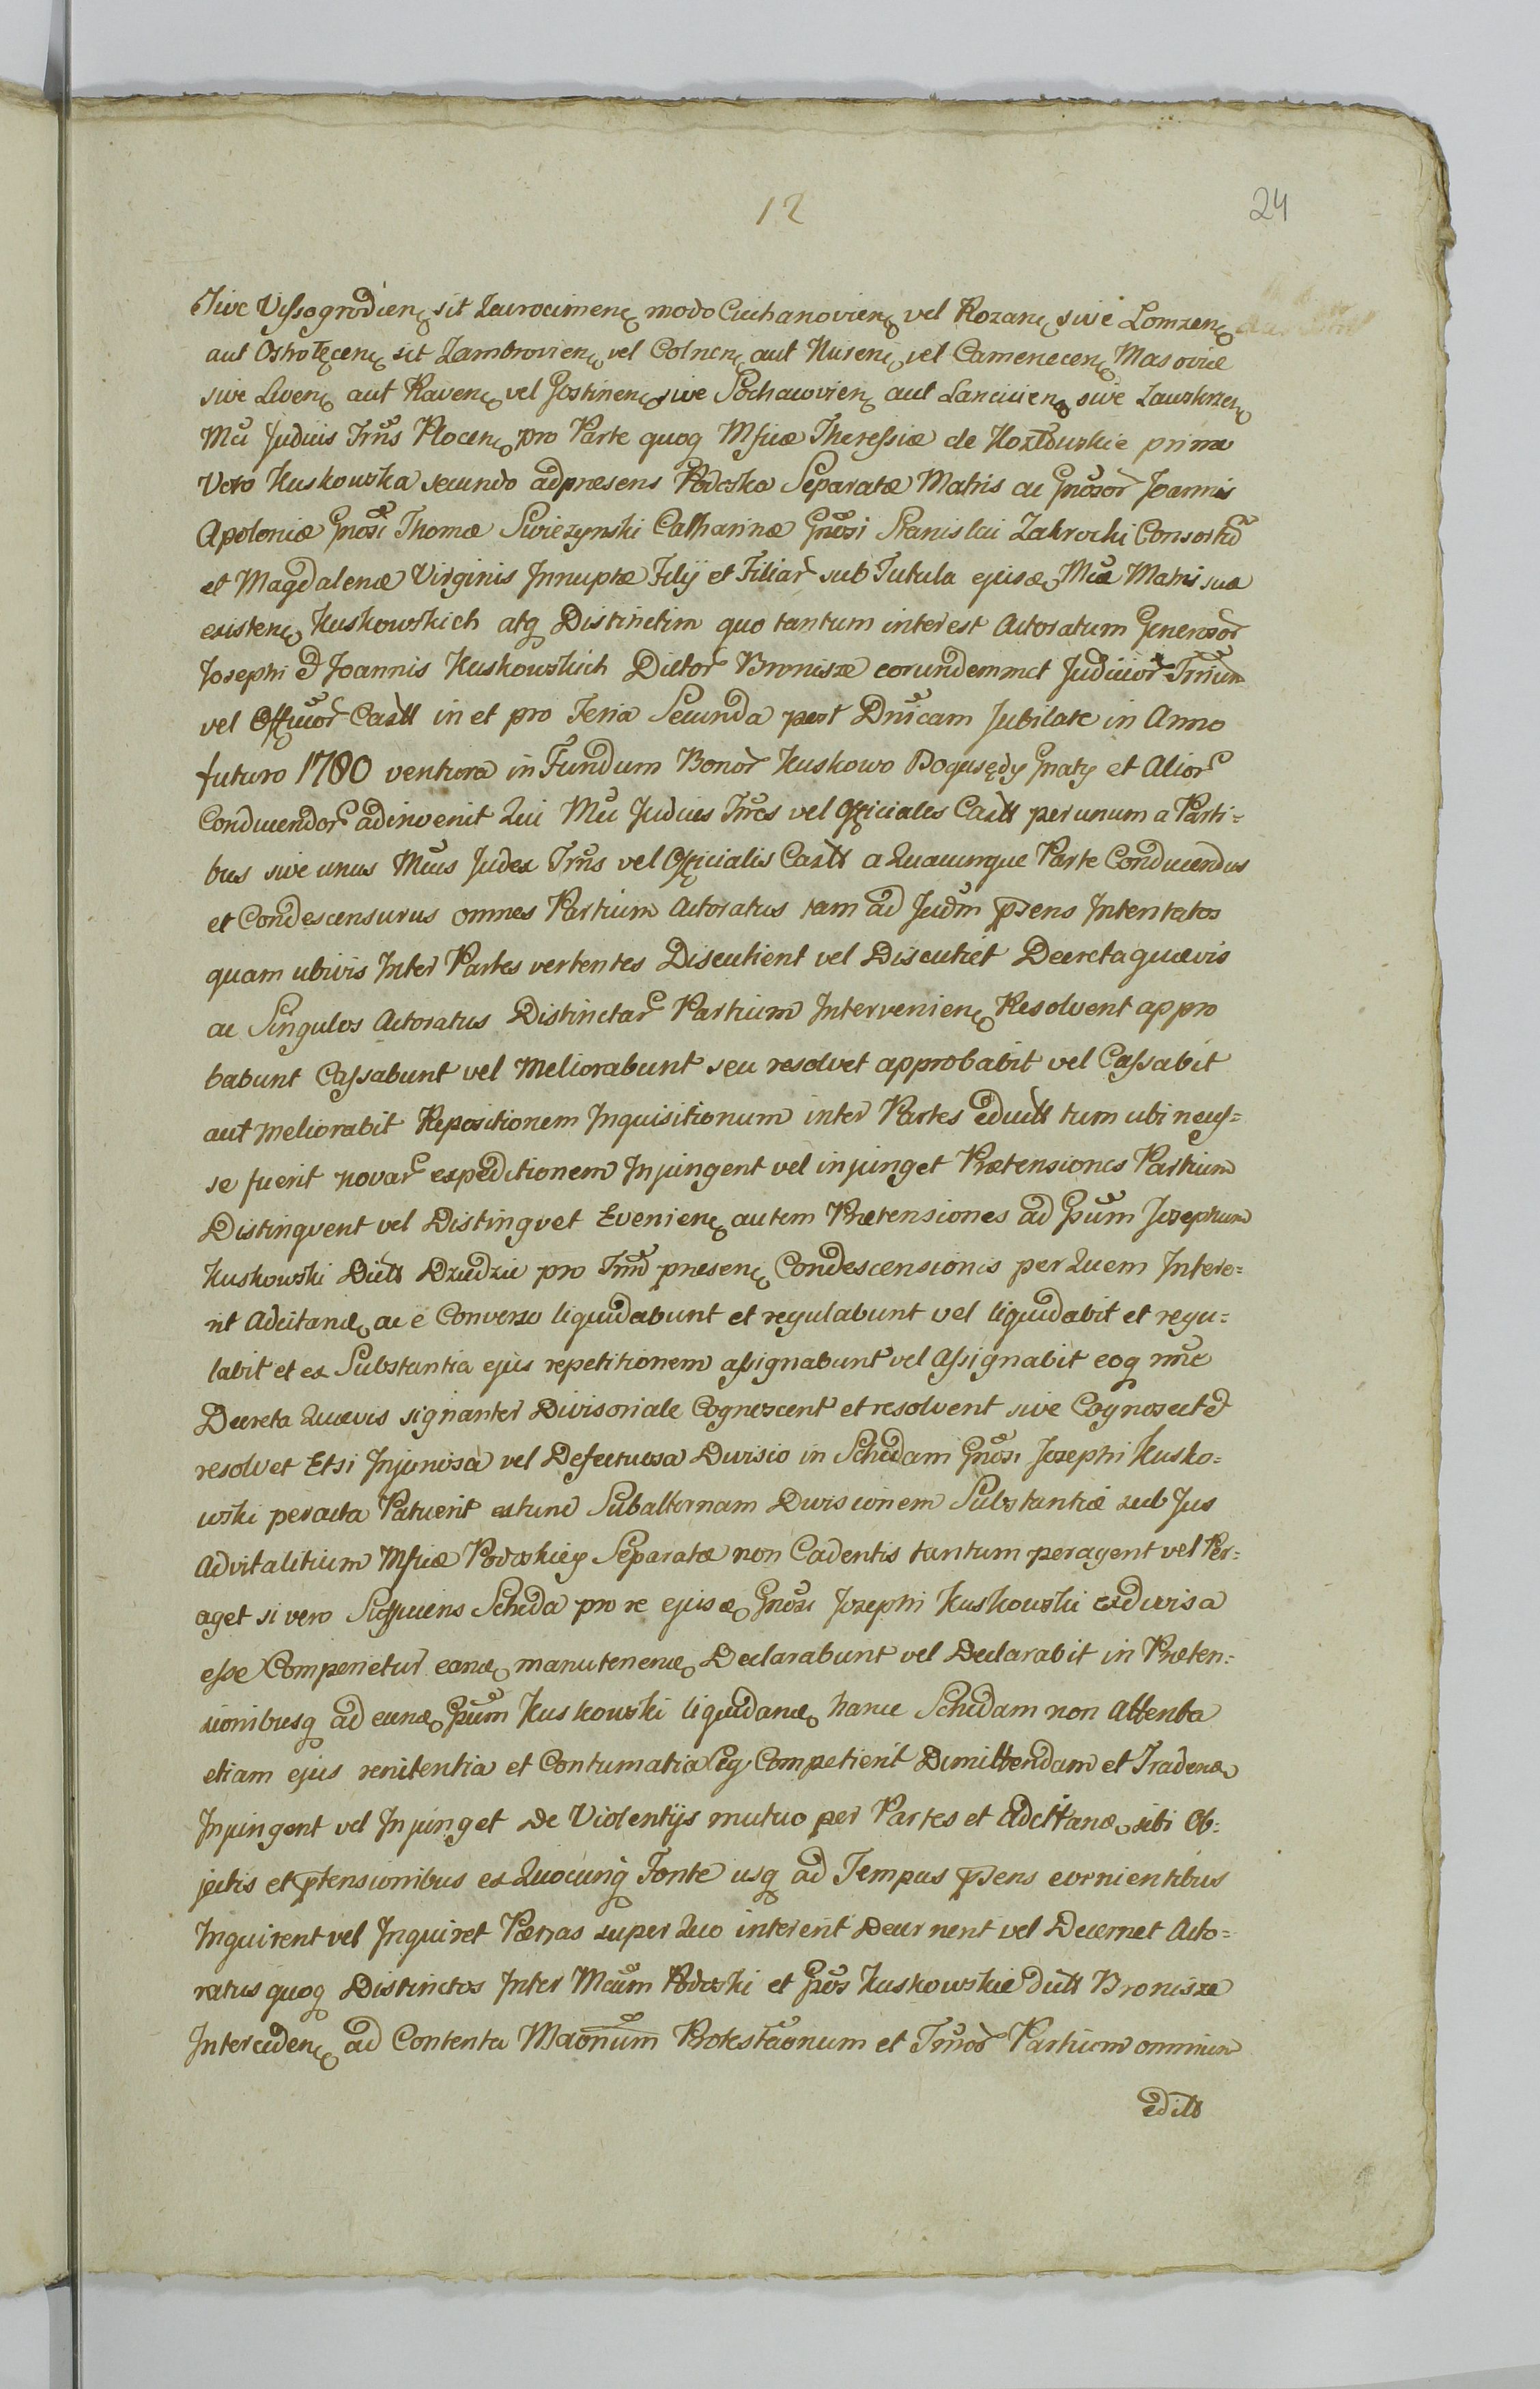 12
24
Sive Vissogrodien, sit Zavrocimen, modo Ciechanovien, vel Rozan, sive Lomzen,
aut Ostrołęcen, sit Zambrovien, vel Colnen, aut Nuren, vel Camenecen, Masoviæ
sive Liven, aut Raven, vel Gostinen, sive Sochacovien, aut Lancicien, sive
Mci Judicis Trris Plocen, pro Parte quoq Mficæ Theressiæ de Kozłowskie primo
Voto Kuskowska secundo adpræsens Podoska Separatæ Matris ac Gnosor Joannis
Apoloniæ Gnosi Thomæ Swiezynski Catharinæ Gnosi Stanislai Zakrocki Consortu
et Magdalenæ Virginis Innuptæ Filij et Filiar sub Tutela ejusd, Mcæ Matris suæ
existen, Kuskowskich atq Distinctim quo tantum interest Actoratum Generosor
Josephi et Joannis Kuskowskich Dictor Bronisze eorundemmet Judicior Trrium
vel Officior Castt in et pro Feria Secunda post Dnicam Jubilate in Anno
futuro 1780 ventura in Fundum Bonor Kuskowo Bogusędy Gnaty et Alior
Conducendor adinvenit Qui Mci Judices Trres vel Officiales Castt per unum a Parti=
bus sive unus Mcus Judex Trris vel Officialis Castt a Quacunque Parte Conducendus
et Condescensurus omnes Partium Actoratus tam ad Judm pñens Intentatos
quam ubivis Inter Partes vertentes Discutient vel Discutiet Decreta quævis
ac Singulos Actoratus Distinctar Partium Intervenien, Resolvent appro
babunt Cassabunt vel Meliorabunt seu resolvet approbabit vel Cassabit
aut meliorabit Repositionem Inquisitionum inter Partes eductt tum ubi neces=
se fuerit novar expeditionem Injungent vel injunget Prætensiones Partium
Distingvent vel Distingvet Evenien, autem Prætensiones ad Gsum Josephum
Kuskowski Dictt Dziedzic pro præsen, Condescensionis per Quem Intere=
rit Adcitand, ac e Converso liquidabunt et regulabunt vel liquidabit et regu=
labit et ex Substantia ejus repetitionem assignabunt vel Assignabit eoq nne
Decreta Quævis signanter Divisoriale Cognoscent et resolvent sive Cognoscet et
resolvet Etsi Injuriosa vel Defectuosa Divisio in Schedam Gnosi Josephi Kusko=
wski peracta Patuerit extunc Subalternam Divisionem Substantiæ sub Jus
Advitalitium Mficæ Podoskiey Separatæ non Cadentis tantum peragent vel Per=
aget si vero Sufficiens Scheda pro re ejusd, Gnosi Josephi Kuskowski exdivisa
esse Comperietur eand, manutenend, Declarabunt vel Declarabit in Præten=
sionibusq ad eund, Gsum Kuskowski liquidand, hanc Schedam non Attenta
etiam ejus renitentia et Contumatia Competierit Dimittendam et Tradend,
Injungent vel Injunget De Violentijs mutuo per Partes et Adcitand, sibi Ob=
jectis et ptensionibus ex Quocunq Fonte usq ad Tempus pñens evenientibus
Inquirent vel Inquiret Pænas super Quo intererit Decernent vel Decernet Acto=
ratus quoq Distinctos Inter Mcum Podoski et Gsos Kuskowskie dictt Bronisze
Interceden, ad Contenta Maonum Protestaonum et Partium omnium
editt